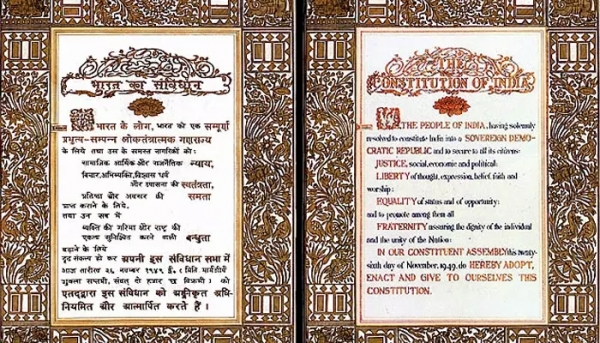 भारत का संविधान
हम भारत के लोग, भारत को एक सम्पूर्ण
प्रभुत्व-सम्पन्न लोकतंत्रात्मक गणराज्य
के लिये तथा उस के समस्त नागरिकों को:
सामाजिक आर्थिक और राजनैतिक न्याय,
विचार,अभिव्यक्ति,विश्वास धर्म
और उपासना की स्वतंत्रता,
प्रतिष्ठा और अवसर की समता
प्राप्त कराने के लिये,
तथा उन सब में
व्यक्ति की गरिमा और राष्ट्र की
एकता सुनिश्चित करने वाली बन्धुता
बढ़ाने के लिये
दृढ संकल्प हो कर अपनी इस संविधान सभा में
आज तारीख २६ नवम्बर १९४९ ई. (मिति मार्गशीर्ष
शुक्ला सप्तमी, संवत् दो हजार छ विक्रमी) को
एतद्द्वारा इस संविधान को अङ्गीकृत अधि-
नियमित और आत्मार्पित करते हैं।
THE
CONSTITUTION OF INDIA
WE, THE PEOPLE OF INDIA, having solemnly
resolved to constitute India into a SOVEREIGN DEMO-
CRATIC REPUBLIC and to secure to all its citizens:
JUSTICE, social, economic and political;
LIBERTY of thought, expression, belief, faith and
worship;
EQUALITY of status and of opportunity;
and to promote among them all
FRATERNITY assuring the dignity of the individual
and the unity of the Nation;
IN OUR CONSTITUENT ASSEMBLY this twenty-
sixth day of November, 1949, do HEREBY ADOPT,
ENACT AND GIVE TO OURSELVES THIS
CONSTITUTION.